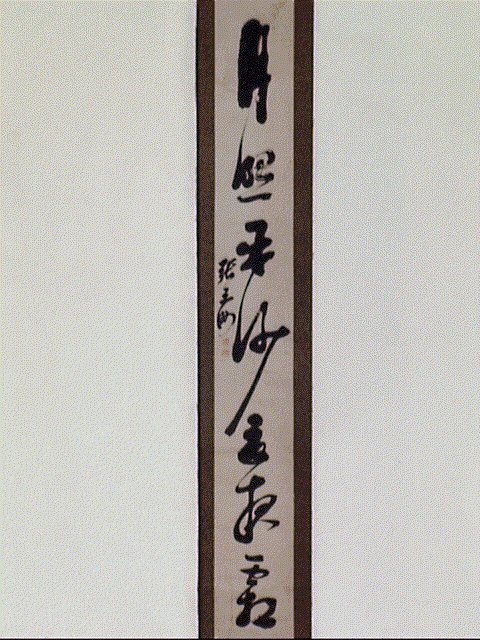 月照平沙夏夜霜
張